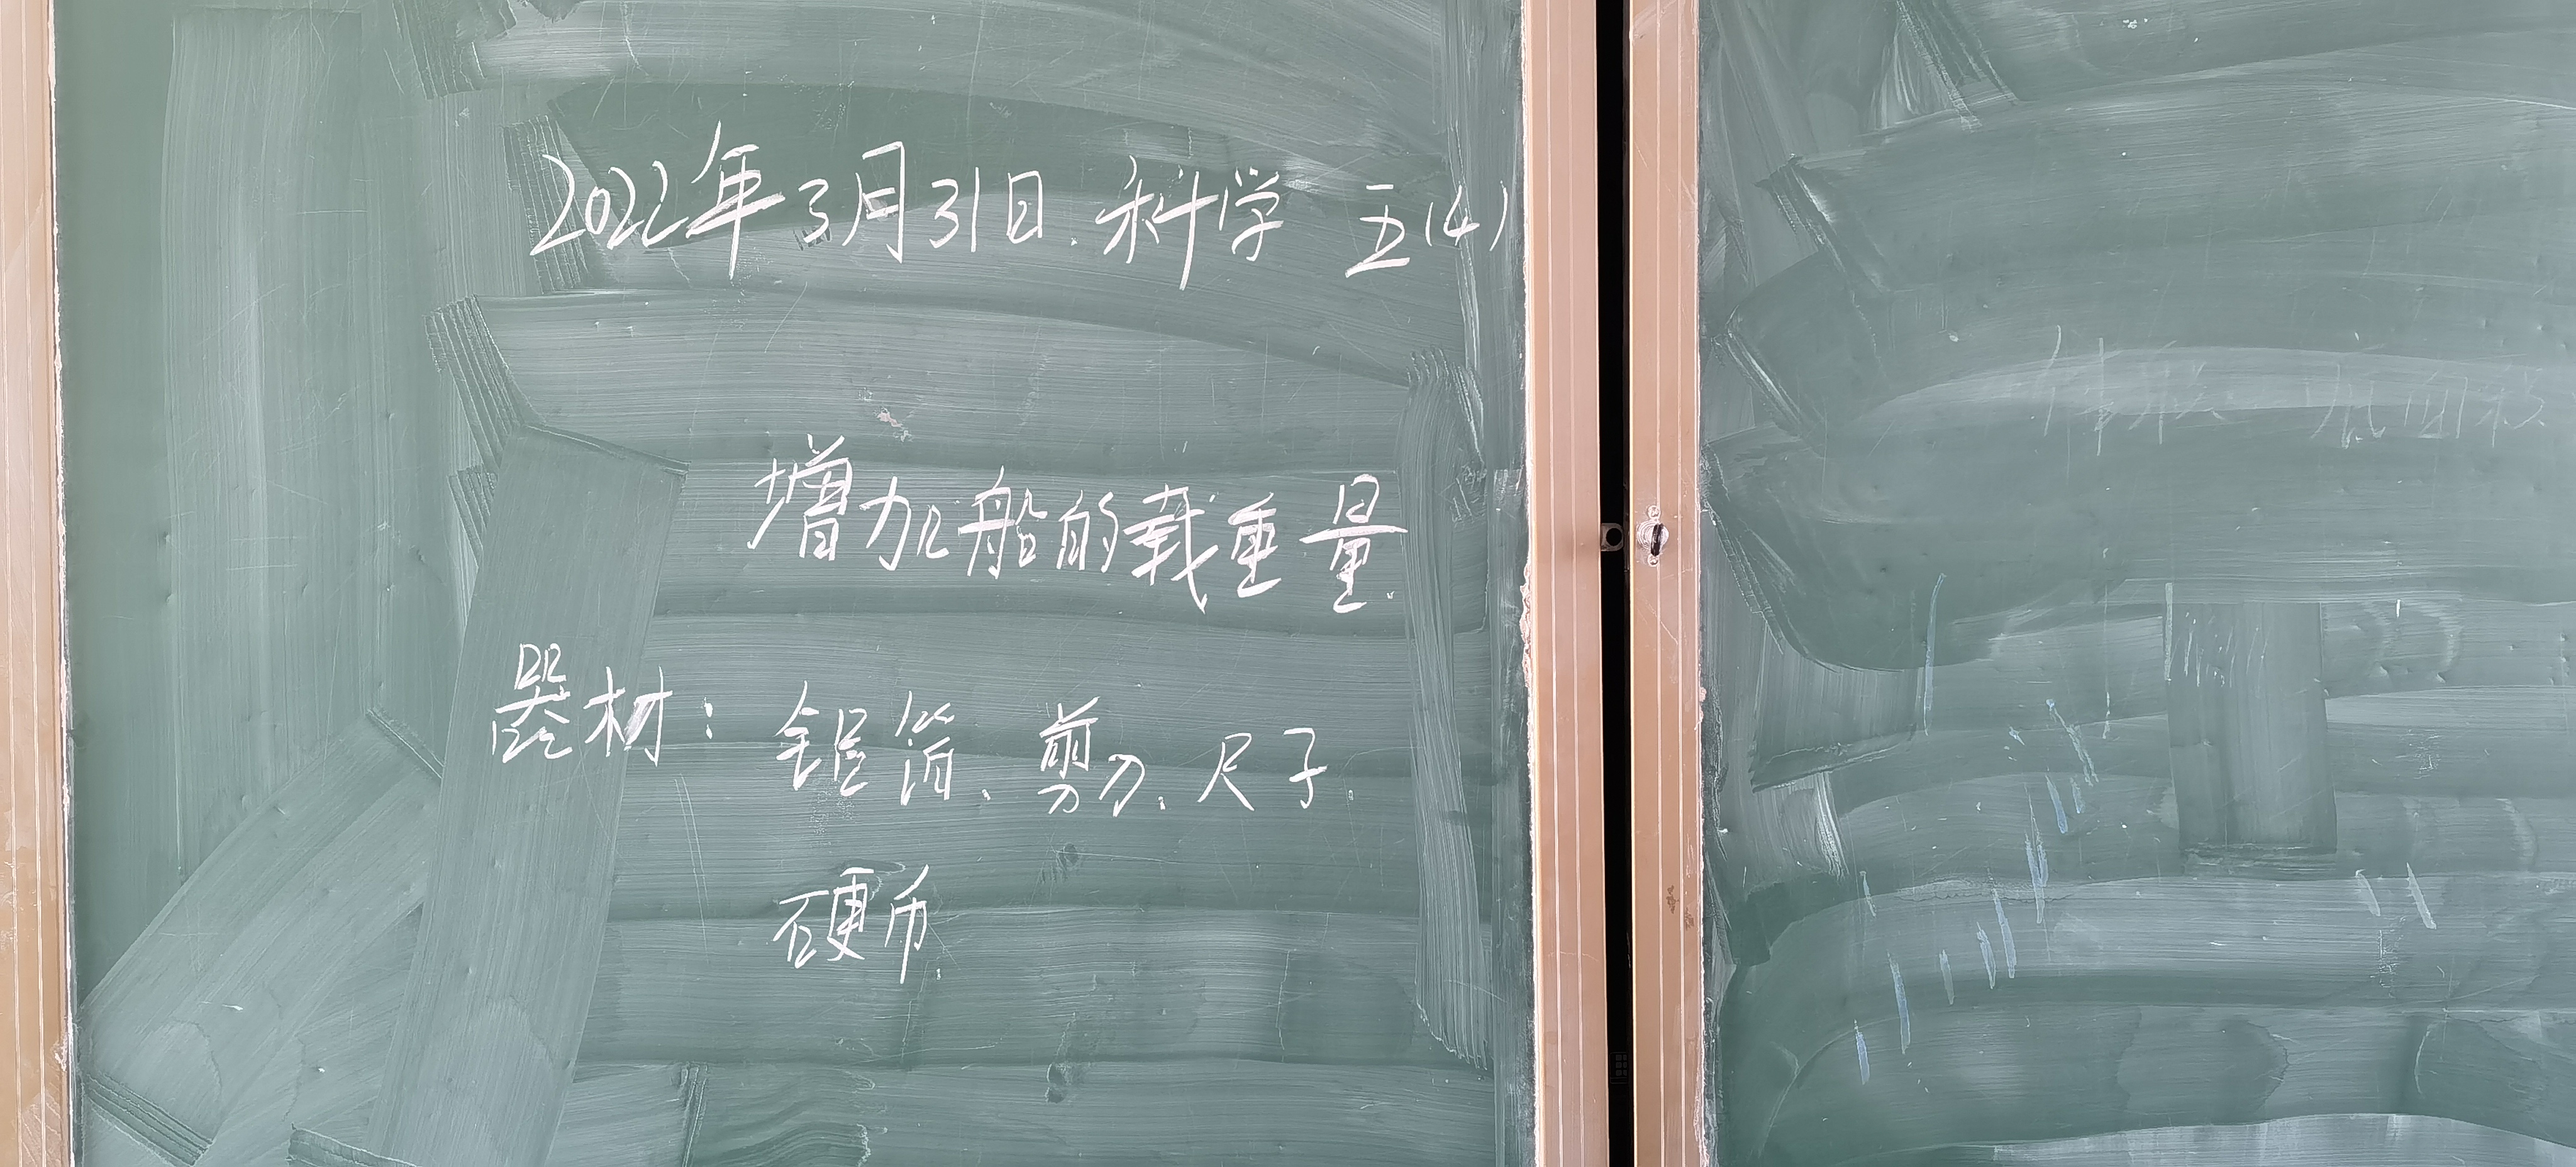 2022年3月31日.科学 五(4)
增加船的载重量.
器材：铝箔、剪刀、尺子
硬币.